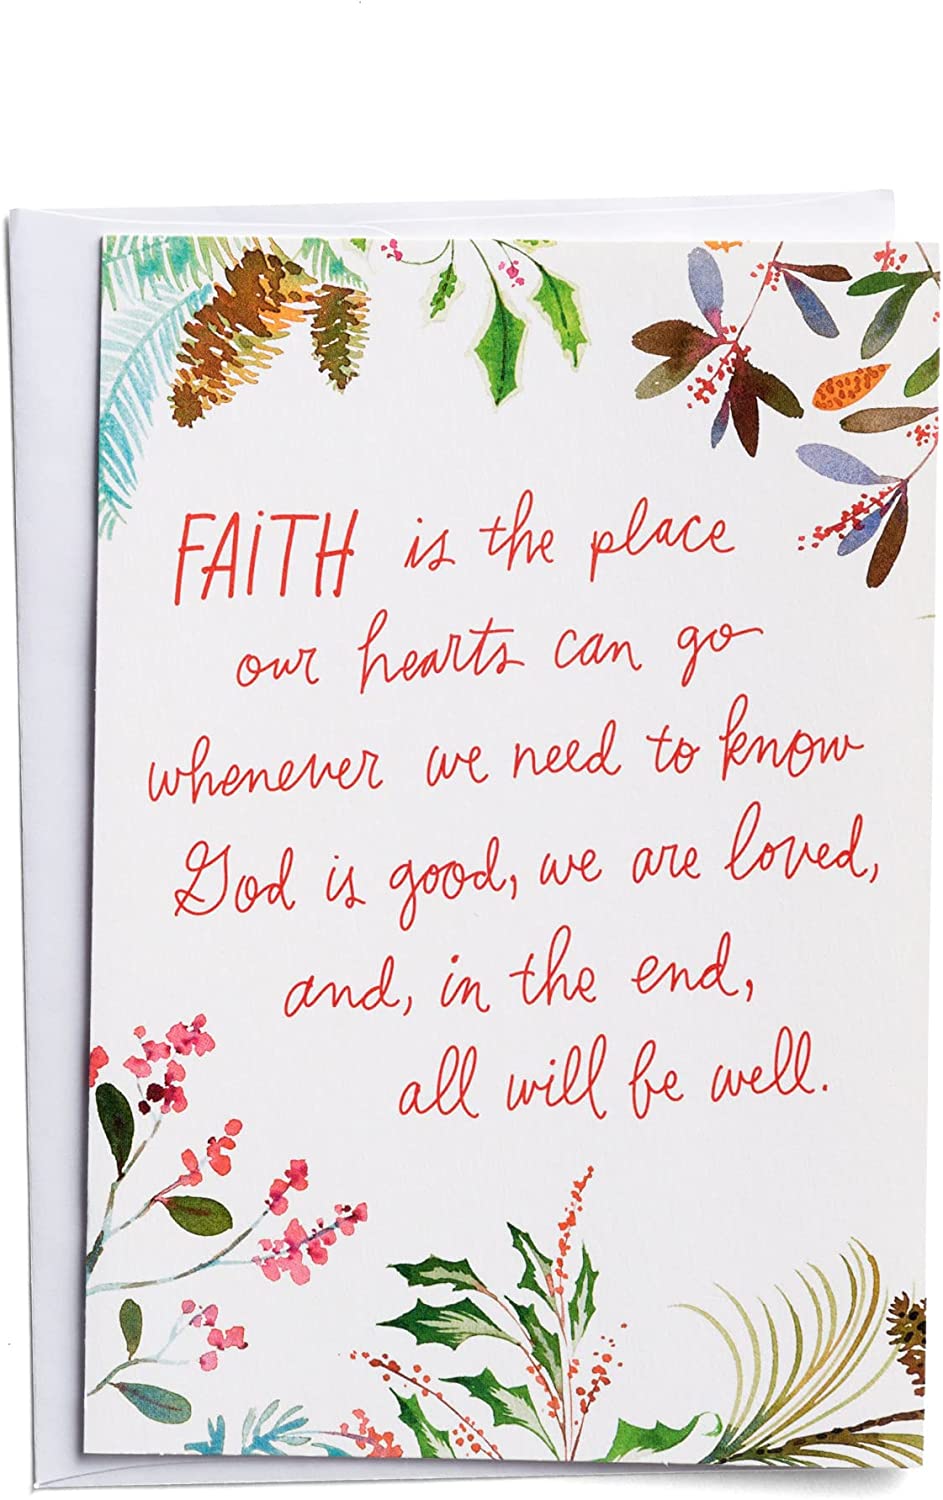 FAiTH is the place
our hearts can go
whenever we need to know
God is good, we are loved,
and, in the end,
all will be well.